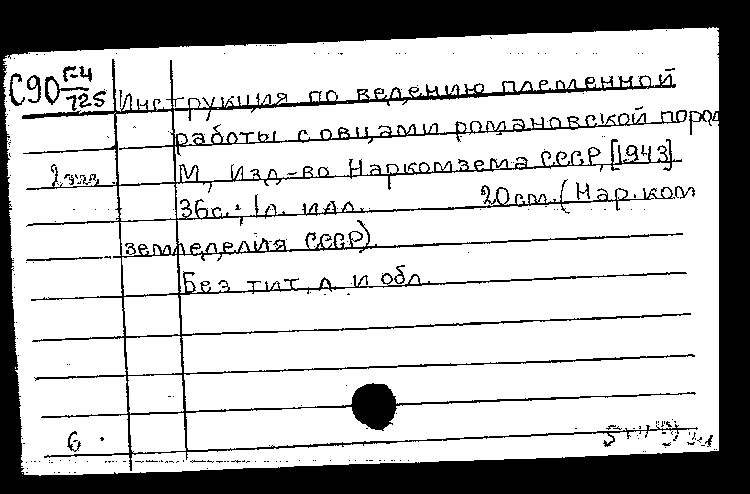 С90 Г-4/725
Инструкция по ведению племенной
работы с овцами романовской пород
2 экз. М, Изд-во Наркомзема СССР, [1943]
36с.; 1л. илл. 20см. (Нар. ком
земледелия СССР).
Без тит. л. и обл.
6.